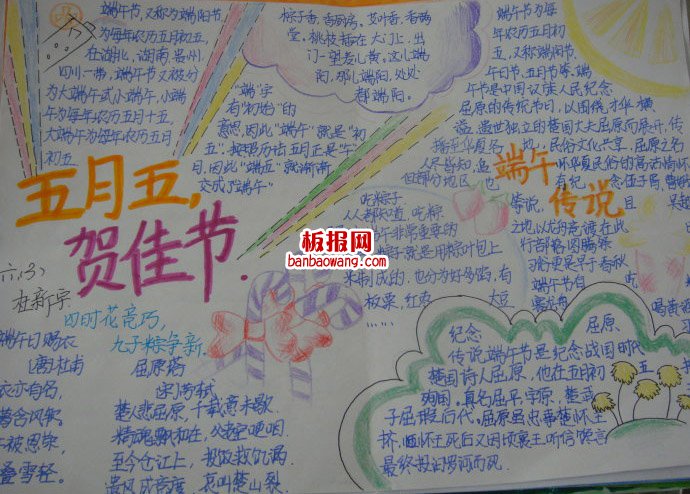 端午节,又称为端阳节,
为每年农历五月初五,
在湖北、湖南、贵州、
四川一带,端午节又被分
为大端午与小端午,小端
午为每年农历五月十五
大端午为每年农历五月
初五
“端”字
有“初始”的
意思,因此“端午”就是“初
五”。
月,因此“端五”就渐渐
变成了“端午”
粽子香,香厨房。艾叶香,香满
堂。桃枝插在大门上,出
门一望麦儿黄。这儿端
阳,那儿端阳,处处
都端阳。
端午节为每
年农历五月初五
又称端阳节
午日节、五月节等,端
午节是中国汉族人民纪念
屈原的传统节日,以围绕才华横
溢、遗世独立的楚国大夫屈原而展开,传
播至华夏各地,民俗文化共享,屈原之名
人尽皆知,追怀华夏民俗的高洁情怀
端午
传说
五月五,
贺佳节.
六(3)
四时花竞巧,
九子粽争新.
吃粽子
人人都知道,吃粽
午非常重要的
粽子就是用粽叶包上
米制成的,也分为好多的,有
板栗,红枣
大豆
板报网
banbaowang.com
端午日赐衣
(唐)杜甫
衣亦有名,
叠雪轻.
屈原塔
(宋)苏轼
楚人悲屈原,千载意未歇.
精魂飘何在,父老空哽咽.
至今仓江上,投饭救饥渴.
遗风成竞渡,哀叫楚山裂.
纪念
屈原
传说端午节是纪念战国时代
楚国诗人屈原,他在五月初五
殉国。真名屈平,字原,楚武
子屈瑕后代。屈原虽忠事楚怀王
最终投汨罗河而死.